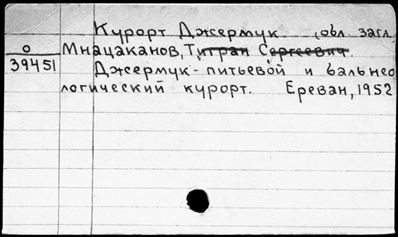 Курорт Джермук. (обл. загл.
О
39451
Мнацаканов, Тигран Сергеевич.
Джермук - питьевой и бальнео
логический курорт. Ереван, 1952